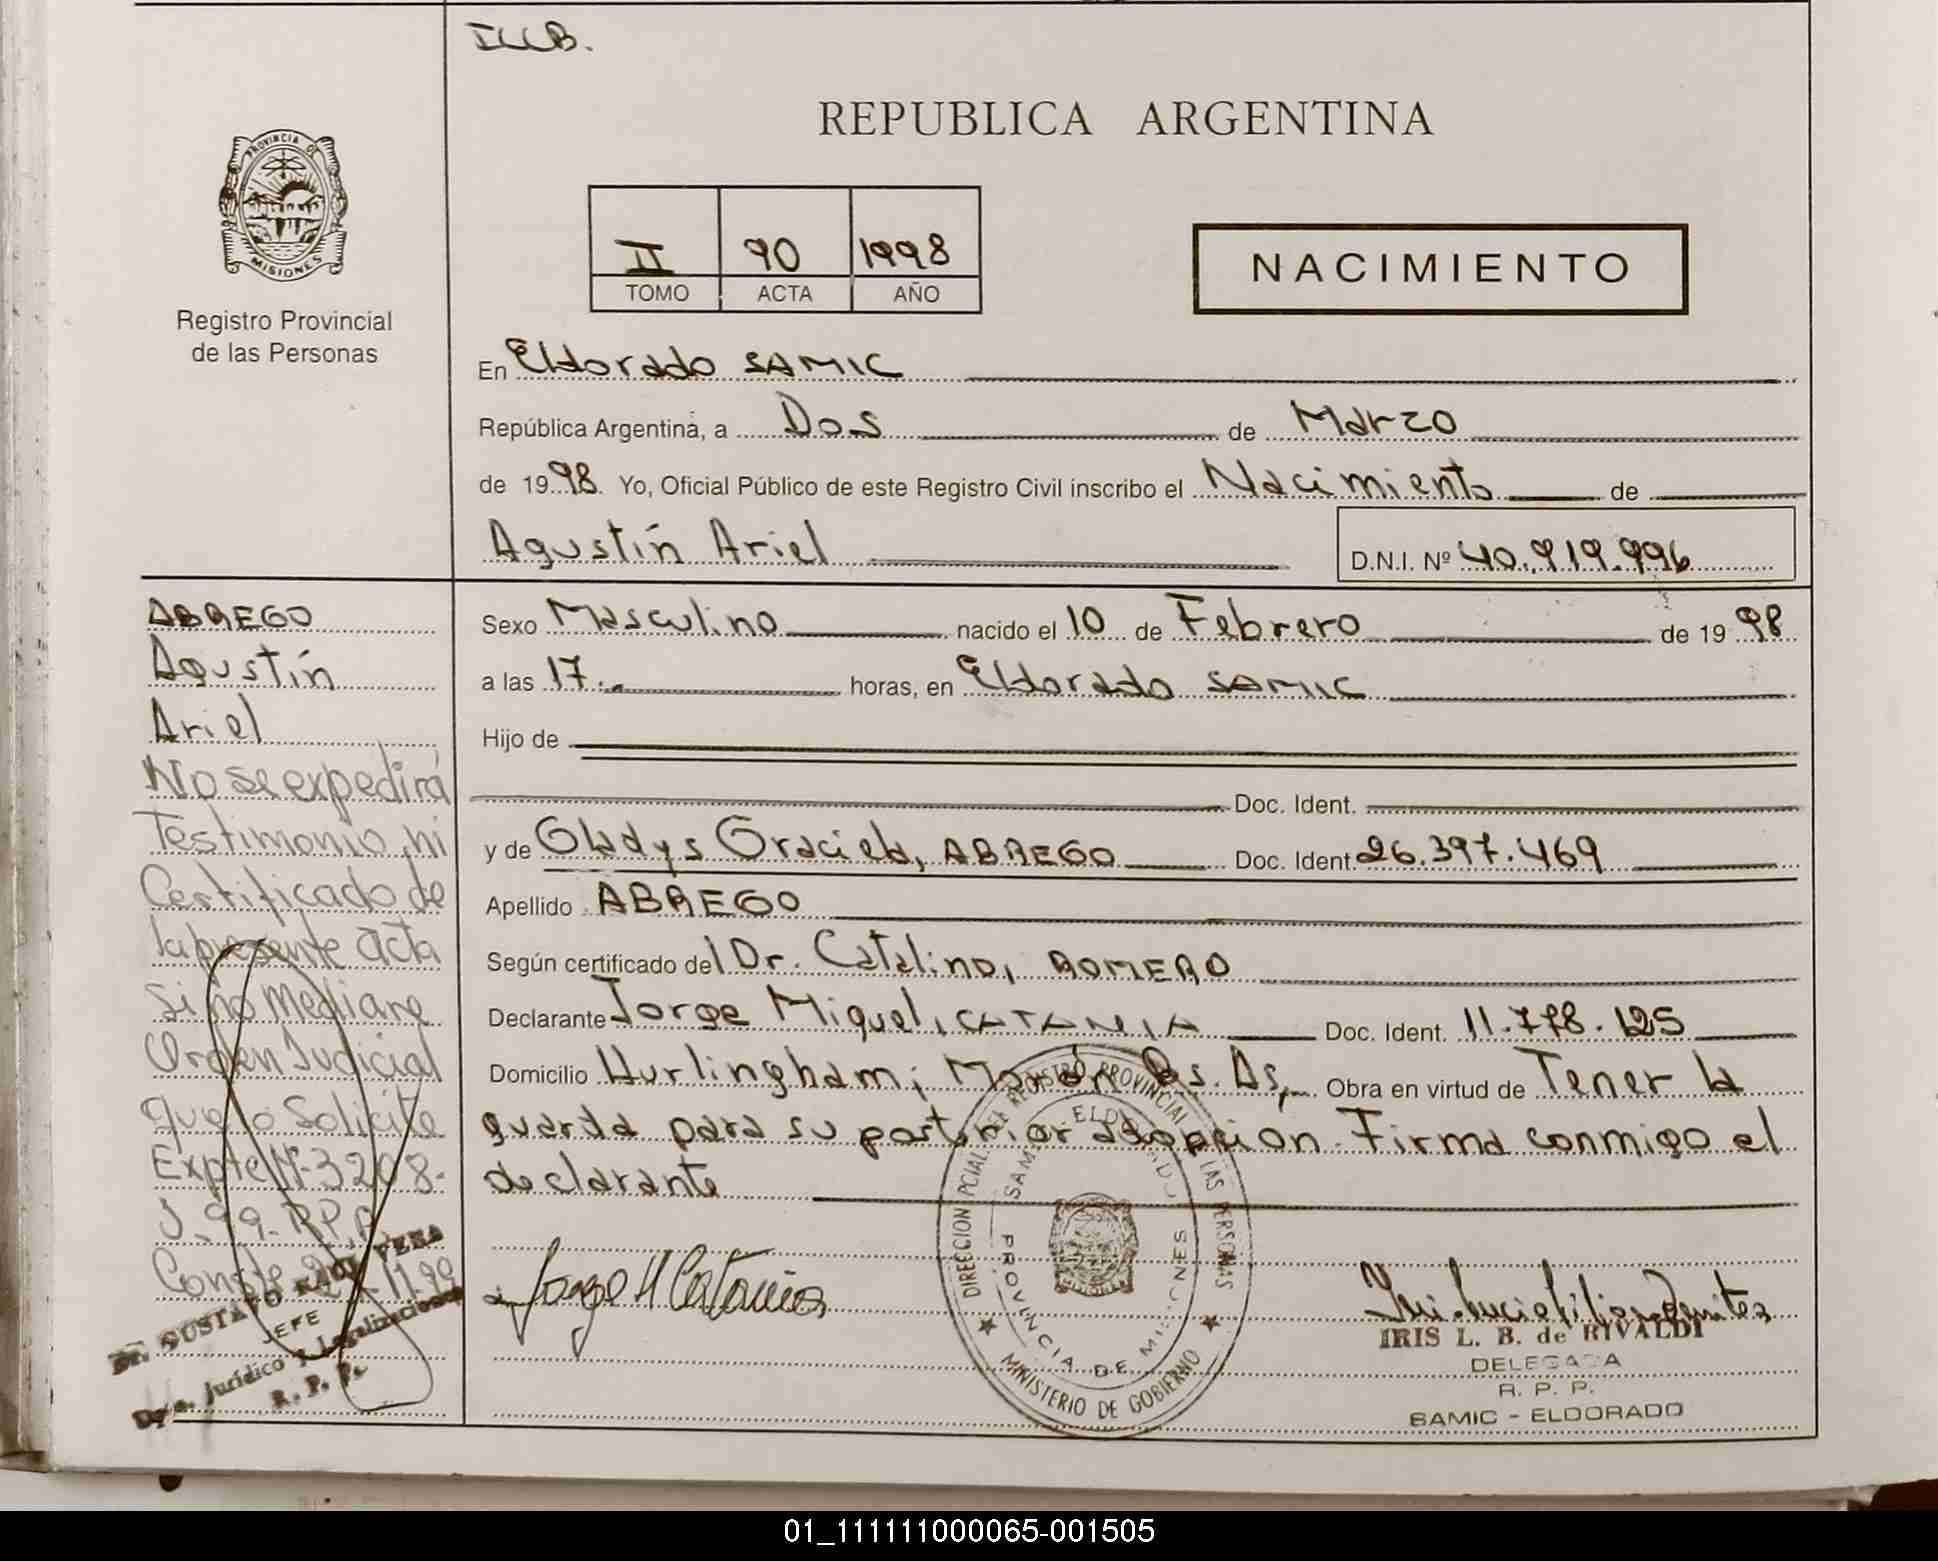 ILLB.
REPUBLICA ARGENTINA
PROVINCIA DE
MISIONES
Registro Provincial
de las Personas
II 90 1998
TOMO ACTA AÑO
NACIMIENTO
En Eldorado SAMIC
República Argentina, a Dos de Marzo
de 1998. Yo, Oficial Público de este Registro Civil inscribo el Nacimiento de
Agustín Ariel D.N.I. Nº 40.919.996
Sexo Masculino nacido el 10 de Febrero de 1998
a las 17.- horas, en Eldorado SAMIC
Hijo de
Doc. Ident.
y de Gladys Graciela, ABREGO Doc. Ident. 26.397.469
Apellido ABREGO
Según certificado del Dr. Catalino, ROMERO
Declarante Jorge Miguel, CATANIA Doc. Ident. 11.778.125
Domicilio Hurlingham, Morón Bs. As,- Obra en virtud de Tener la
guarda para su posterior adopción. Firma conmigo el
declarante
ABREGO
Agustín
Ariel
No se expedirá
Testimonio, ni
Certificado de
la presente acta
si no mediare
Orden Judicial
que lo Solicite
Expte Nº 3208-
J. 99- R.P.P.
Conste 11.99
Dr. GUSTAVO
JEFE
Dpto. Jurídico y Legalizaciones
R. P. P.
Jorge M Catania
DIRECCION PCIAL. DEL REGISTRO PROVINCIAL DE LAS PERSONAS
SAMIC ELDORADO
PROVINCIA DE MISIONES
MINISTERIO DE GOBIERNO
IRIS L. B. de RIVALDI
DELEGADA
R. P. P.
SAMIC - ELDORADO
01_111111000065-001505